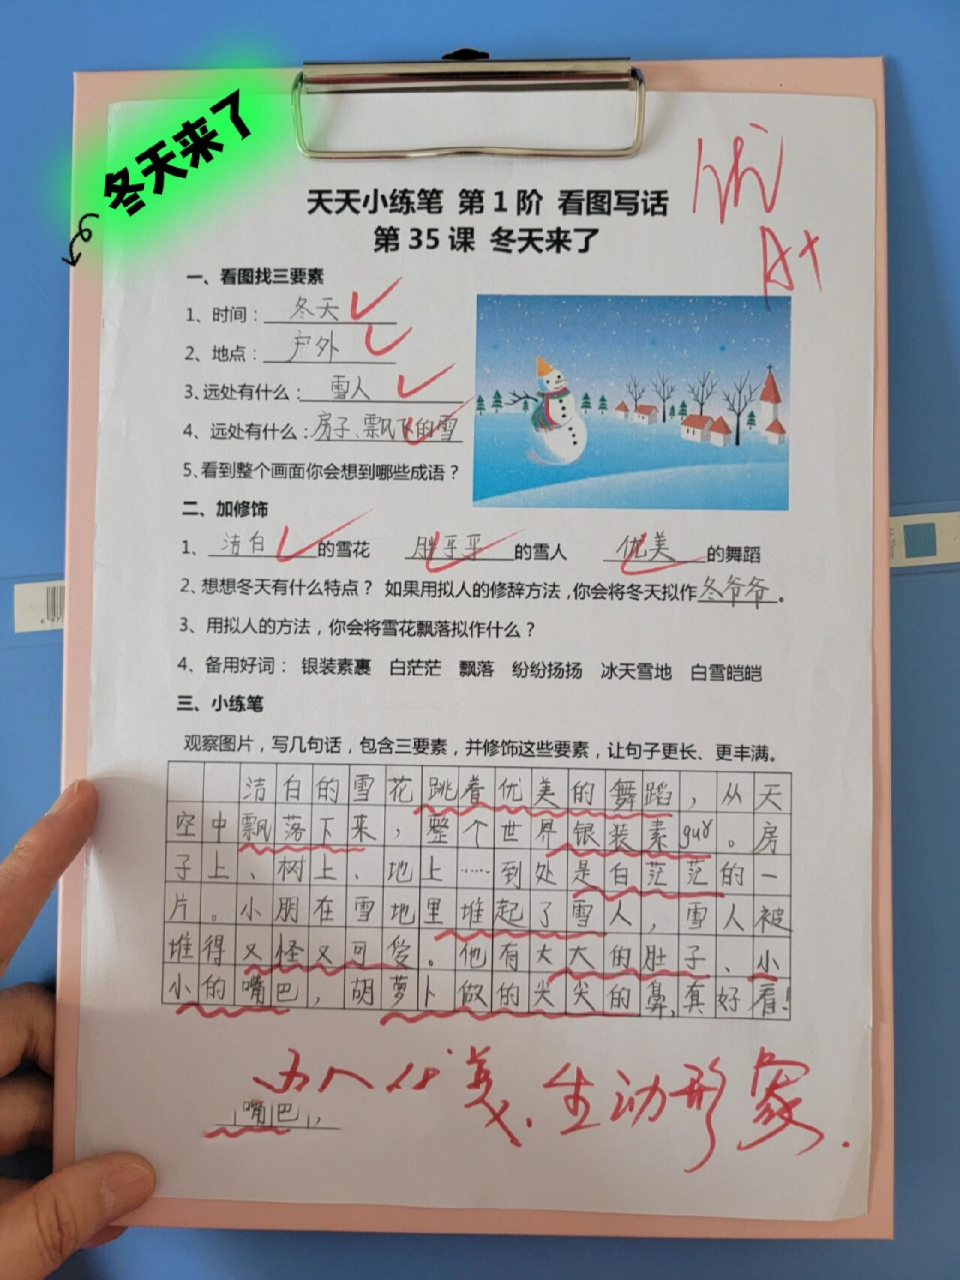 冬天来了
优
A+
天天小练笔 第1阶 看图写话
第35课 冬天来了
一、看图找三要素
1、时间：冬天
2、地点：户外
3、远处有什么：雪人
4、远处有什么：房子、飘下的雪
5、看到整个画面你会想到哪些成语？
二、加修饰
1、洁白的雪花 胖乎乎的雪人 优美的舞蹈
2、想想冬天有什么特点？ 如果用拟人的修辞方法，你会将冬天拟作冬爷爷。
3、用拟人的方法，你会将雪花飘落拟作什么？
4、备用好词： 银装素裹 白茫茫 飘落 纷纷扬扬 冰天雪地 白雪皑皑
三、小练笔
观察图片，写几句话，包含三要素，并修饰这些要素，让句子更长、更丰满。
洁白的雪花跳着优美的舞蹈，从天
空中飘落下来，整个世界银装素guǒ。房
子上、树上、地上……到处是白茫茫的一
片。小朋在雪地里堆起了雪人，雪人被
堆得又怪又可爱。他有大大的肚子、小
小的嘴巴，胡萝卜做的尖尖的鼻，真好看！
优美、生动形象.
嘴巴，